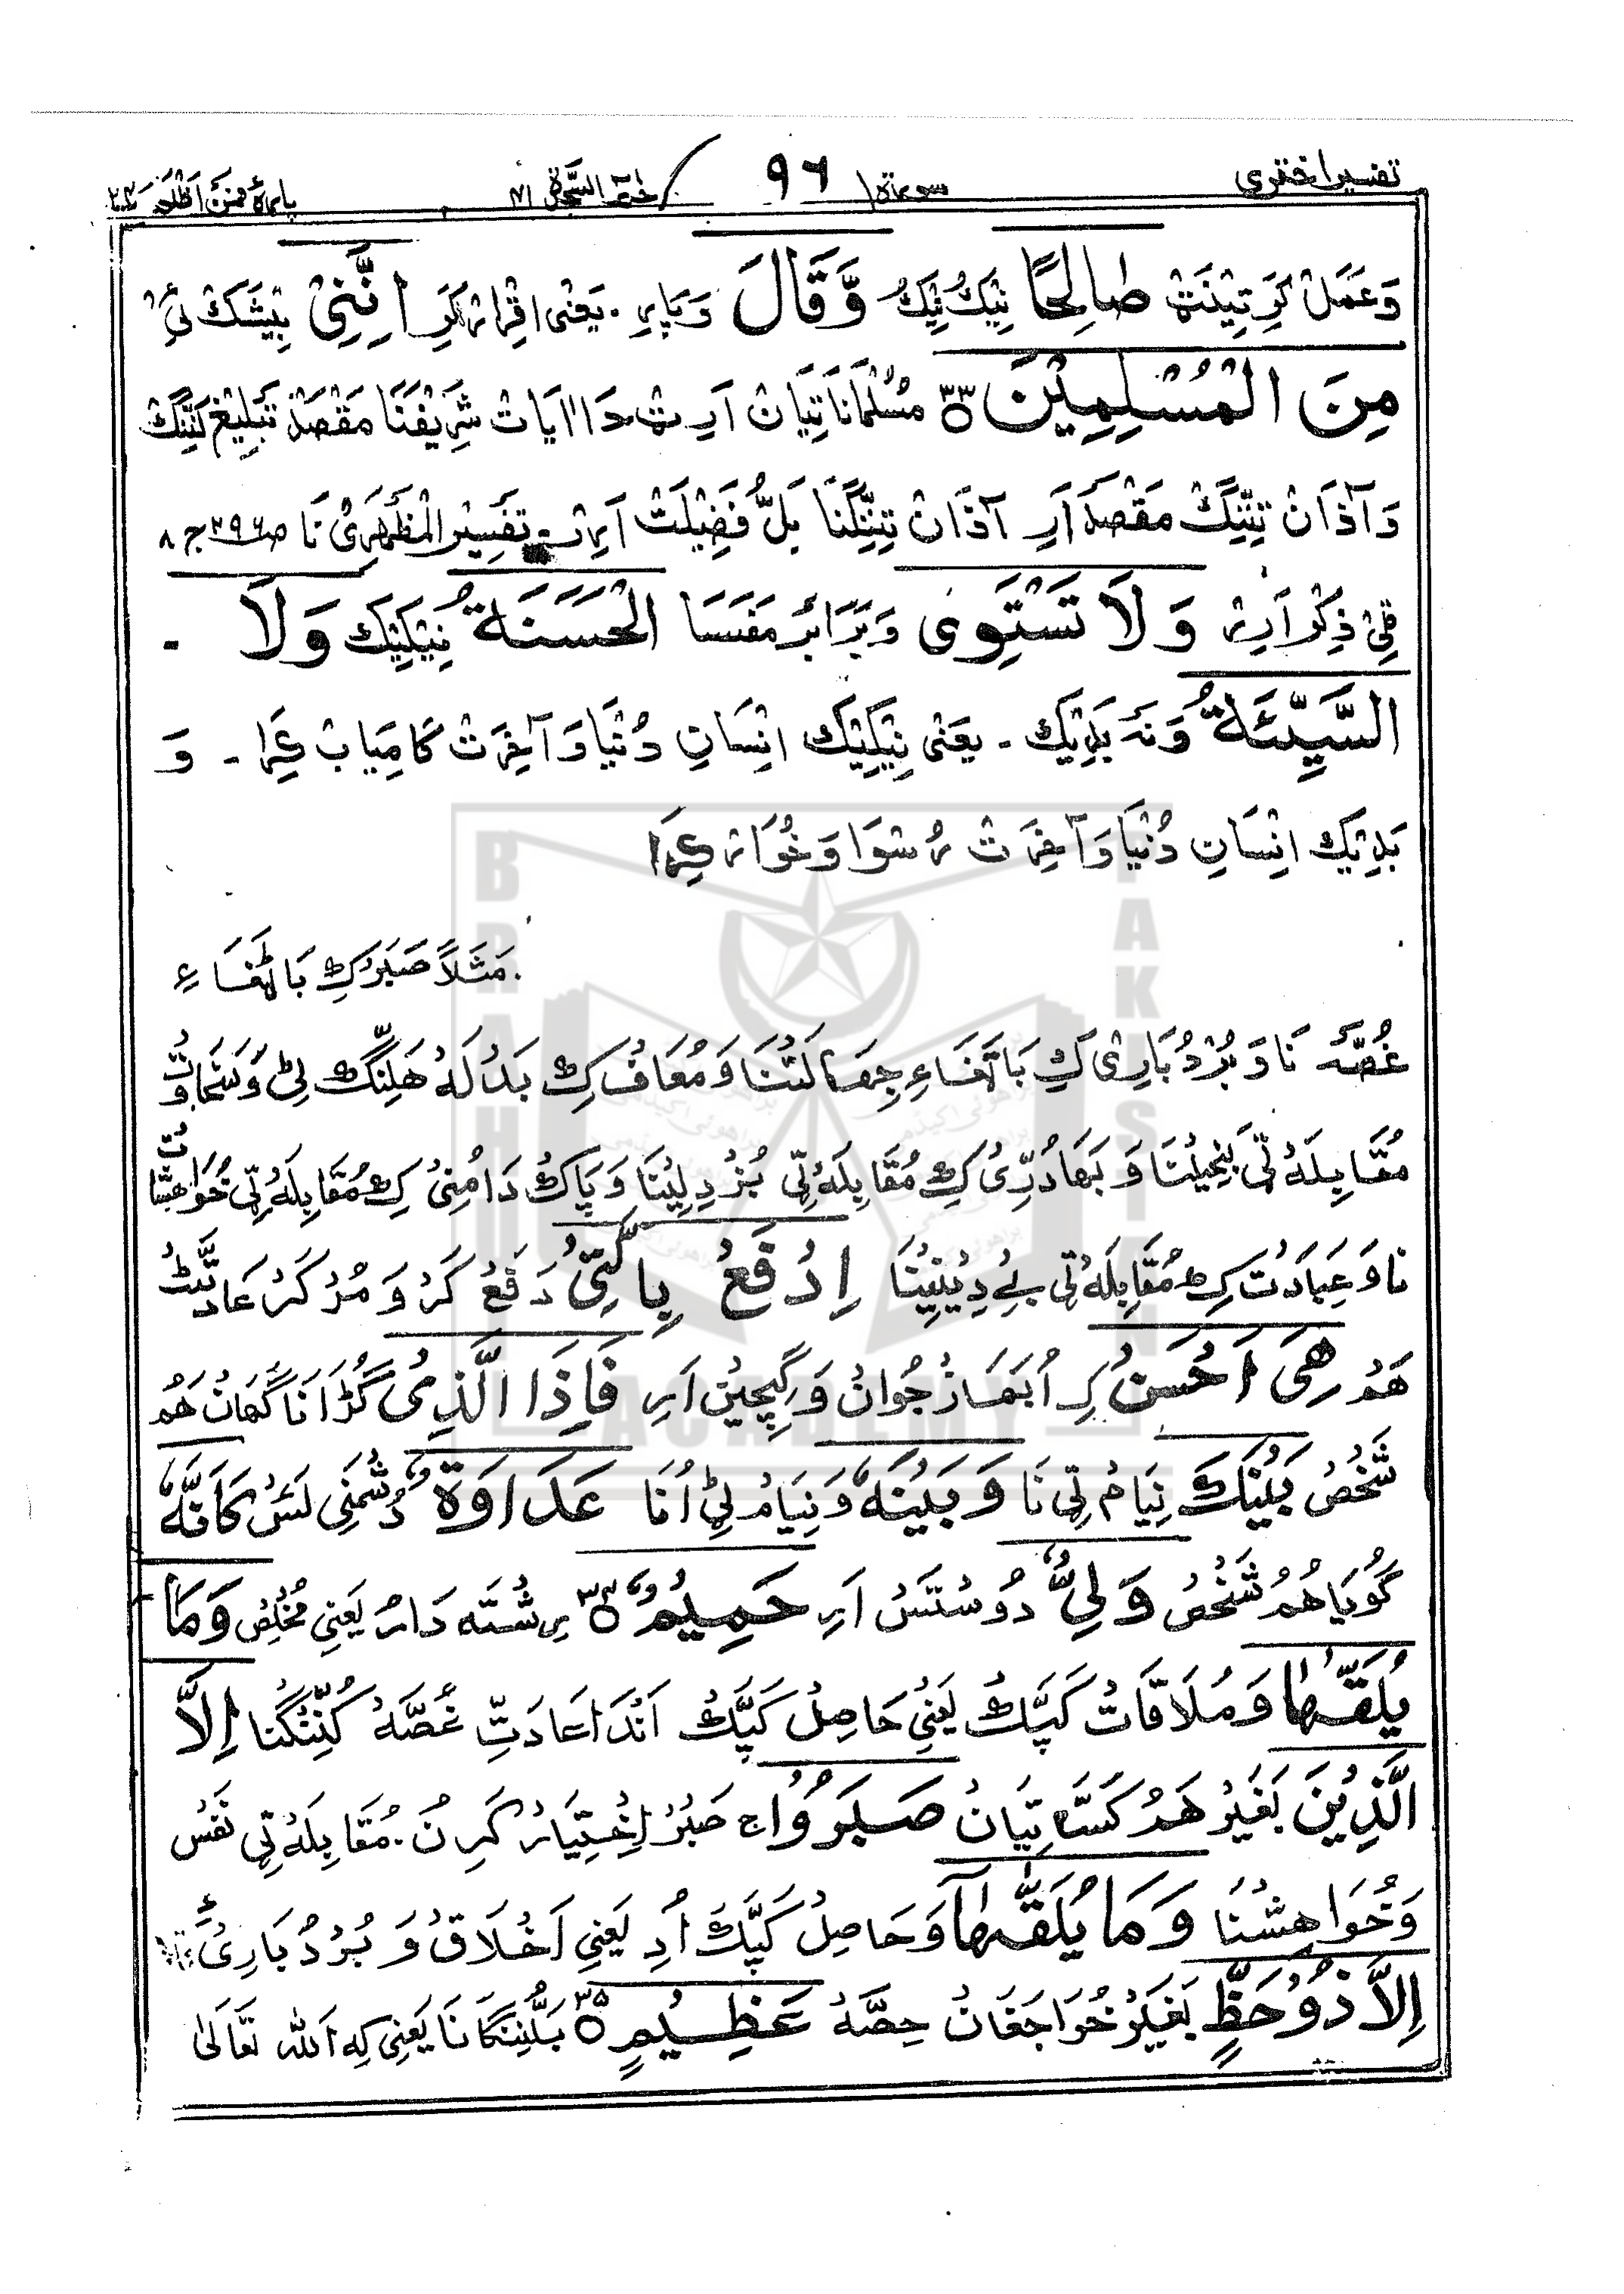 تفسیر اختری سورۃ ٩٦ حٰم السَّجدۃ ٤١ پارہ فمن اظلم ٢٤
وَعَمَل کَرِ تِینَتْ صَالِحًا نیک نیک وَّقَالَ وَپَاہِرِ ۔ یَعْنٰی اِقْرَار کَرِ اِنَّنِیْ بِیْشَکْ ئِیْ
مِنَ الْمُسْلِمِیْنَ ٣٣ مُسُلْمَانَا تِیَانْ اَرِٹْ ۔ دَا اٰیَاتْ شَرِیْفَنَا مَقْصَدْ تَبْلِیغْ کَنِّنْگ
وَ آذَانْ تِنِّنْگ مَقْصَدْ اَرِ آذَانْ تِنِّنْگَنَا بَلُّ فَضِیْلَتْ اَرِٹ ۔ تَفْسِیْر الْمَظْهَرِیْ نَا صـ ٣٩٦ ج ٨
ٹِیْ ذِکْر اَرِٹْ وَلَا تَسْتَوِی وَ بَرَابَر مَفَسَا الْحَسَنَةُ نِیْکِیْک وَلَا ۔
السَّیِّئَةُ وَنَه بَدِیْک ۔ یعنی نِیْکِیْک اِنْسَانِ دُنْیَا وَ آخِرَتْ کَامِیَابْ کِرَا ۔ وَ
بَدِیْک اِنْسَانِ دُنْیَا وَ آخِرَتْ رُسْوَا وَ خُوَار کِرَا
۔ مَثَلًا صَبَرْ کِ بَاتْفَاءِ
غُصَّه نَا وَ بُرْدُبَارِیْ کِ بَاتْفَاءِ جِهَالَتْنَا وَ مُعَافْ کِ بَدْلَهْ هَلِنْگ ٹِیْ وَ سَخَاوَتْ
مُقَابِلَهْ ٹِیْ بَخِیْلْنَا وَ بَهَادُرِیْ کِ مُقَابِلَهْ ٹِیْ بُزْدِلِیْنَا وَ پَاکْ دَامُنِیْ کِ مُقَابِلَهْ ٹِیْ خُوَاهِشَاتْ
نَا وَ عِبَادَتْ کِ مُقَابِلَهْ ٹِیْ بِے دِیْنِیْنَا اِدْفَعْ بِالَّتِیْ دَفَعْ کَرْ وَ مُرْ کَرْ عَادَتَّٹْ
هَمْ هِیَ اَحْسَنُ کِ اُ بَهَازْ جُوَانْ وَ گِچِیْنْ اَرِ فَاِذَا الَّذِیْ گُڑَا نَاگُهَانْ هَمْ
شَخْصْ بَیْنَکَ نِیَامْ ٹِیْ نَا وَبَیْنَهٗ وَ نِیَامْ ٹِیْ اُنَا عَدَاوَةٌ دُشْمَنِی ئَسْ کَاَنَّهٗ
گُویَا هَمْ شَخْصْ وَلِیٌّ دُوسْتَسْ اَرِ حَمِیْمٌ ٣٤ رِشْتَه دَارْ یَعْنِی مُخْلِصْ وَمَا
یُلَقّٰهَا وَ مُلَاقَاتْ کَپَّکْ یَعْنِی حَاصِلْ کَپَّکْ اَنْدَا عَادَتِ غُصَّهْ کُنِّنْگَنَا اِلَّا
الَّذِیْنَ بَغَیْرْ هَمْ کَسَّا تِیَانْ صَبَرُوْا ج صَبْرْ اِخْتِیَارْ کَرِنْ ۔ مُقَابِلَهْ ٹِیْ نَفْسْ
وَ خُوَاهِشْنَا وَمَا یُلَقّٰهَآ وَ حَاصِلْ کَپَّکْ اُدِ یَعْنِی اَخْلَاقْ وَ بُرْدُبَارِیْءِ
اِلَّا ذُوْ حَظٍّ بَغَیْرْ خُوَاجَغَانْ حِصَّهْ عَظِیْمٍ ٣٥ بَلُّنِنْگَانَا یَعْنِی کِه اَللّٰه تَعَالٰی
BRAHUI
TAKSHIN
ACADEMY